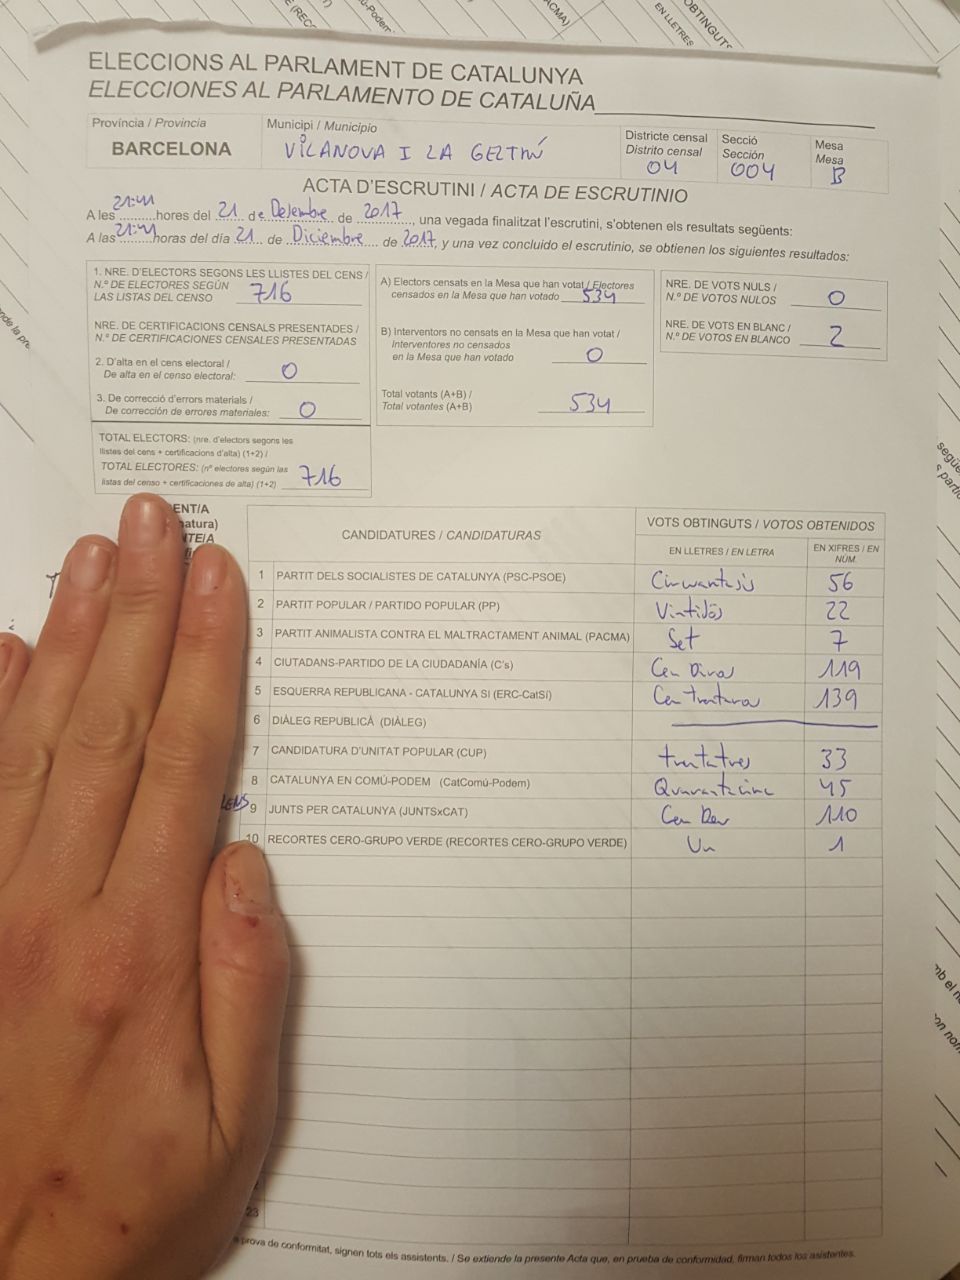 ELECCIONS AL PARLAMENT DE CATALUNYA
ELECCIONES AL PARLAMENTO DE CATALUÑA
Província / Provincia
BARCELONA
Municipi / Municipio
VILANOVA I LA GELTRÚ
Districte censal
Distrito censal
04
Secció
Sección
004
Mesa
Mesa
B
ACTA D'ESCRUTINI / ACTA DE ESCRUTINIO
A les 21:41 hores del 21 de Desembre de 2017, una vegada finalitzat l'escrutini, s'obtenen els resultats següents:
A las 21:41 horas del día 21 de Diciembre de 2017, y una vez concluido el escrutinio, se obtienen los siguientes resultados:
1. NRE. D'ELECTORS SEGONS LES LLISTES DEL CENS /
N.º DE ELECTORES SEGÚN
LAS LISTAS DEL CENSO 716
NRE. DE CERTIFICACIONS CENSALS PRESENTADES /
N.º DE CERTIFICACIONES CENSALES PRESENTADAS
2. D'alta en el cens electoral /
De alta en el censo electoral: 0
3. De correcció d'errors materials /
De corrección de errores materiales: 0
TOTAL ELECTORS: (nre. d'electors segons les
llistes del cens + certificacions d'alta) (1+2) /
TOTAL ELECTORES: (nº electores según las
listas del censo + certificaciones de alta) (1+2) 716
A) Electors censats en la Mesa que han votat / Electores
censados en la Mesa que han votado 534
B) Interventors no censats en la Mesa que han votat /
Interventores no censados
en la Mesa que han votado 0
Total votants (A+B) /
Total votantes (A+B) 534
NRE. DE VOTS NULS /
N.º DE VOTOS NULOS 0
NRE. DE VOTS EN BLANC /
N.º DE VOTOS EN BLANCO 2
CANDIDATURES / CANDIDATURAS
VOTS OBTINGUTS / VOTOS OBTENIDOS
EN LLETRES / EN LETRA
EN XIFRES / EN NÚM.
1 PARTIT DELS SOCIALISTES DE CATALUNYA (PSC-PSOE) Cinquantasis 56
2 PARTIT POPULAR / PARTIDO POPULAR (PP) Vintidós 22
3 PARTIT ANIMALISTA CONTRA EL MALTRACTAMENT ANIMAL (PACMA) Set 7
4 CIUTADANS-PARTIDO DE LA CIUDADANÍA (C's) Cen Dinou 119
5 ESQUERRA REPUBLICANA - CATALUNYA SÍ (ERC-CatSí) Cen trentanou 139
6 DIÀLEG REPUBLICÀ (DIÀLEG)
7 CANDIDATURA D'UNITAT POPULAR (CUP) trentatres 33
8 CATALUNYA EN COMÚ-PODEM (CatComú-Podem) Quarantacinc 45
9 JUNTS PER CATALUNYA (JUNTSxCAT) Cen Deu 110
10 RECORTES CERO-GRUPO VERDE (RECORTES CERO-GRUPO VERDE) Un 1
23
a prova de conformitat, signen tots els assistents. / Se extiende la presente Acta que, en prueba de conformidad, firman todos los asistentes.